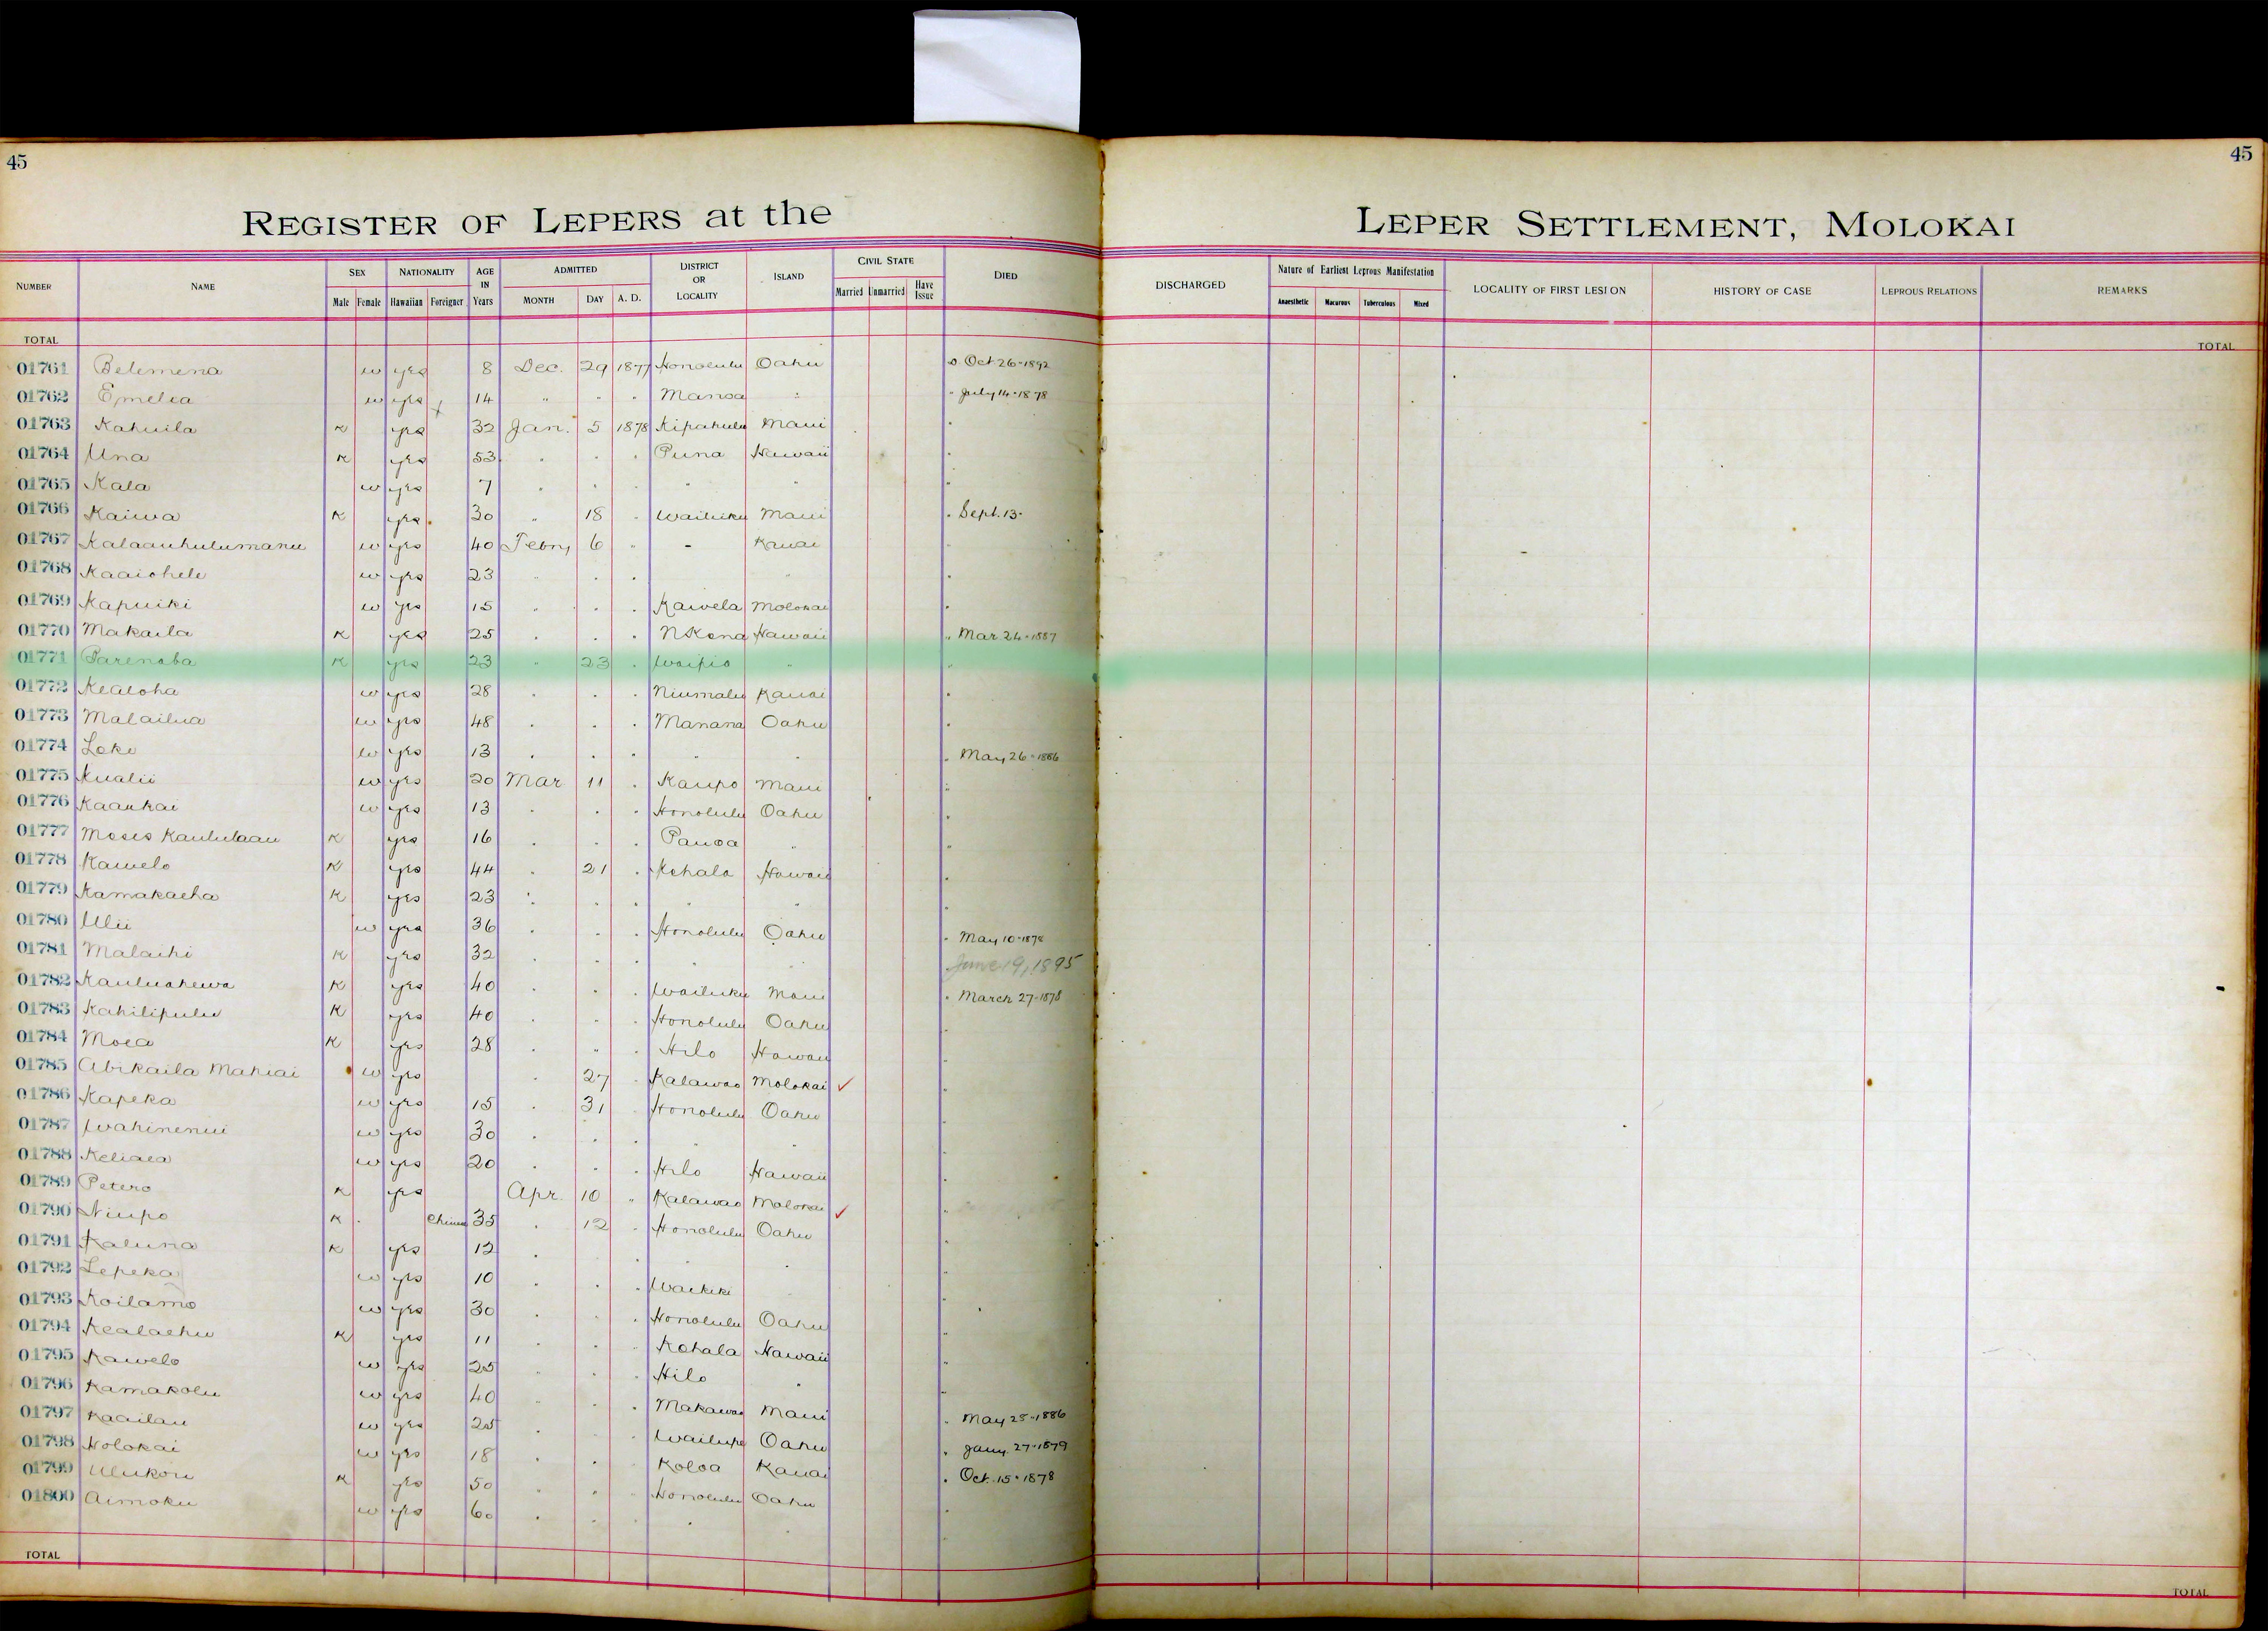 45
45
REGISTER OF LEPERS at the LEPER SETTLEMENT, MOLOKAI
NUMBER NAME SEX NATIONALITY AGE IN Years ADMITTED DISTRICT OR LOCALITY ISLAND CIVIL STATE DIED DISCHARGED Nature of Earliest Leprous Manifestation LOCALITY OF FIRST LESION HISTORY OF CASE LEPROUS RELATIONS REMARKS
Male Female Hawaiian Foreigner MONTH DAY A. D. Married Unmarried Have Issue Anaesthetic Macurous Tuberculous Mixed
TOTAL TOTAL
01761 Belemena w yes 8 Dec. 29 1877 Honolulu Oahu Oct 26-1892
01762 Emelia w yes 14 " " " Manoa " " July 14-1878
01763 Kahuila K yes 32 Jan. 5 1878 Kipahulu Maui "
01764 Una K yes 53 " " " Puna Hawaii "
01765 Kala w yes 7 " " " " " "
01766 Kaiwa K yes 30 " 18 " Wailuku Maui " Sept. 13-
01767 Kalaauhulumanu w yes 40 Febry 6 " - Kauai "
01768 Kaaiohele w yes 23 " " " " "
01769 Kapuiki w yes 15 " " " Kawela Molokai "
01770 Makaila K yes 25 " " " N Kona Hawaii " Mar 24-1887
01771 Parenaba K yes 23 " 23 " Waipio " "
01772 Kealoha w yes 28 " " " Niumalu Kauai "
01773 Malailua w yes 48 " " " Manana Oahu "
01774 Loke w yes 13 " " " " " " May 26-1886
01775 Kualii w yes 20 Mar 11 " Kaupo Maui "
01776 Kaaukai w yes 13 " " " Honolulu Oahu "
01777 Moses Kaululaau K yes 16 " " " Pauoa " "
01778 Kawelo K yes 44 " 21 " Kohala Hawaii "
01779 Kamakaeha K yes 23 " " " " " "
01780 Ulii w yes 36 " " " Honolulu Oahu " May 10-1878
01781 Malaihi K yes 32 " " " " " June 19, 1895
01782 Kauluahewa K yes 40 " " " Wailuku Maui " March 27-1878
01783 Kahilipulu K yes 40 " " " Honolulu Oahu "
01784 Moea K yes 28 " " " Hilo Hawaii "
01785 Abikaila Mahiai w yes " 27 " Kalawao Molokai ✓ "
01786 Kapeka w yes 15 " 31 " Honolulu Oahu "
01787 Wahinenui w yes 30 " " " " " "
01788 Keliaea w yes 20 " " " Hilo Hawaii "
01789 Petero K yes Apr. 10 " Kalawao Molokai ✓ "
01790 Niupo K Chinese 35 " 12 " Honolulu Oahu "
01791 Kaluna K yes 12 " " " " " "
01792 Lepeka w yes 10 " " " Waikiki " "
01793 Koilamo w yes 30 " " " Honolulu Oahu "
01794 Kealaehu K yes 11 " " " Kohala Hawaii "
01795 Kawelo w yes 25 " " " Hilo " "
01796 Kamakolu w yes 40 " " " Makawao Maui " May 25-1886
01797 Kaailau w yes 25 " " " Wailupe Oahu " Jany. 27-1879
01798 Holokai w yes 18 " " " Koloa Kauai " Oct. 15-1878
01799 Ulukou K yes 50 " " " Honolulu Oahu "
01800 Aimoku w yes 60 " " " " " "
TOTAL TOTAL